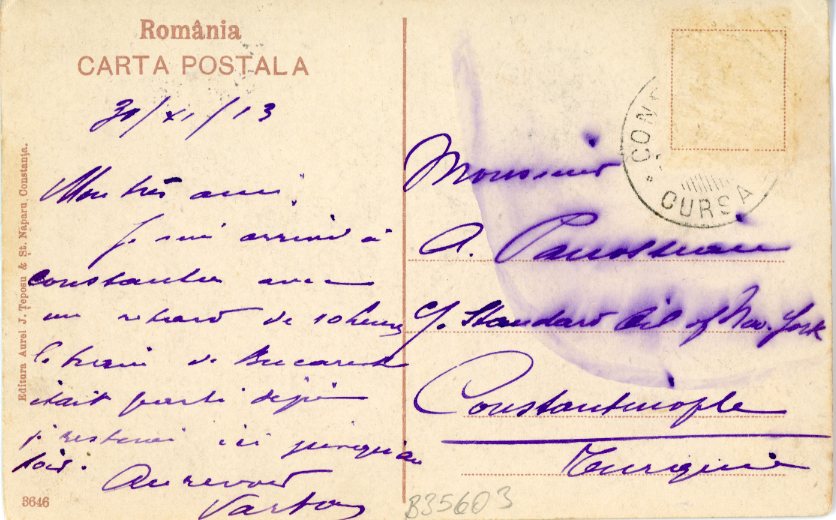 România
CARTA POSTALA
30/XI/13
Mon très ami,
Je suis arrivé à
Constantza avec
un retard de 10 heures
le train de Bucarest
était parti déjà
je resterai ici jusqu'au
soir.
Au revoir
Vartan
Editura Aurel J. Țeposu & Șt. Naparu Constanța.
3646
Monsieur
A. Panossian
c/. Standard Oil of New. York
Constantinople
Turquie
CON
CURSA
B35603